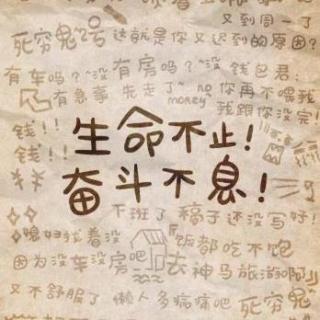 又到周一了
死穷鬼2号 这就是你又迟到的原因?
有车吗?~没有房吗?~没 钱包君:
有急事 先走了~ no money 你再不喂我
我跟你没完!
钱!!
钱!!
生命不止!
奋斗不息!
下班了 稿子还没写好!
媳妇找着没
饭都吃不饱
因为没车没房吧 去神马旅游啊
又不舒服了 懒人多病痛吧 死穷